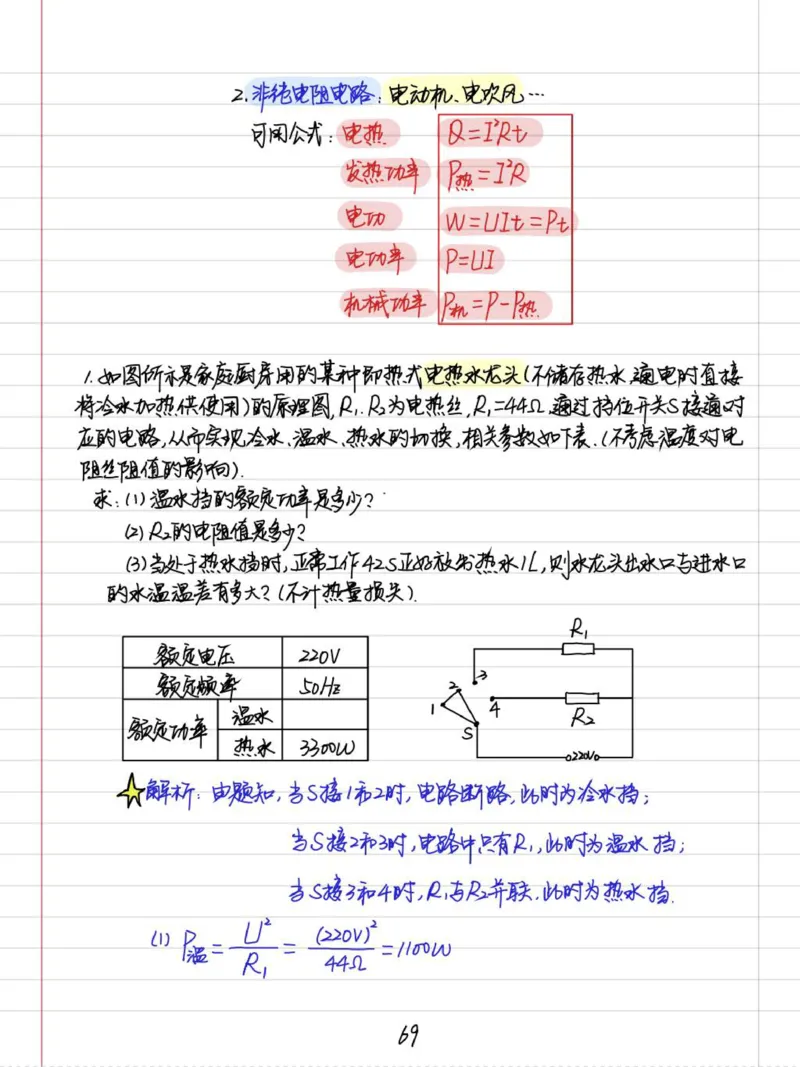 2.非纯电阻电路：电动机、电吹风…
可用公式：电热 Q=I²Rt
发热功率 P热=I²R
电功 W=UIt=Pt
电功率 P=UI
机械功率 P机=P-P热
1.如图所示是家庭厨房用的某种即热式电热水龙头(不储存热水,通电时直接
将冷水加热供使用)的原理图,R₁、R₂为电热丝,R₁=44Ω,通过挡位开关S接通对
应的电路,从而实现冷水、温水、热水的切换,相关参数如下表.(不考虑温度对电
阻丝阻值的影响).
求:(1)温水挡的额定功率是多少?
(2)R₂的电阻值是多少?
(3)当处于热水挡时,正常工作42S正好放出热水1L,则水龙头出水口与进水口
的水温温差有多大?(不计热量损失).
额定电压 220V
额定频率 50Hz
额定功率 温水
热水 3300W
R₁
3
2
1
4
R₂
S
220V
解析:由题知,当S接1和2时,电路断路,此时为冷水挡;
当S接2和3时,电路中只有R₁,此时为温水挡;
当S接3和4时,R₁与R₂并联,此时为热水挡.
(1) P温=U²/R₁=(220V)²/44Ω=1100W
69